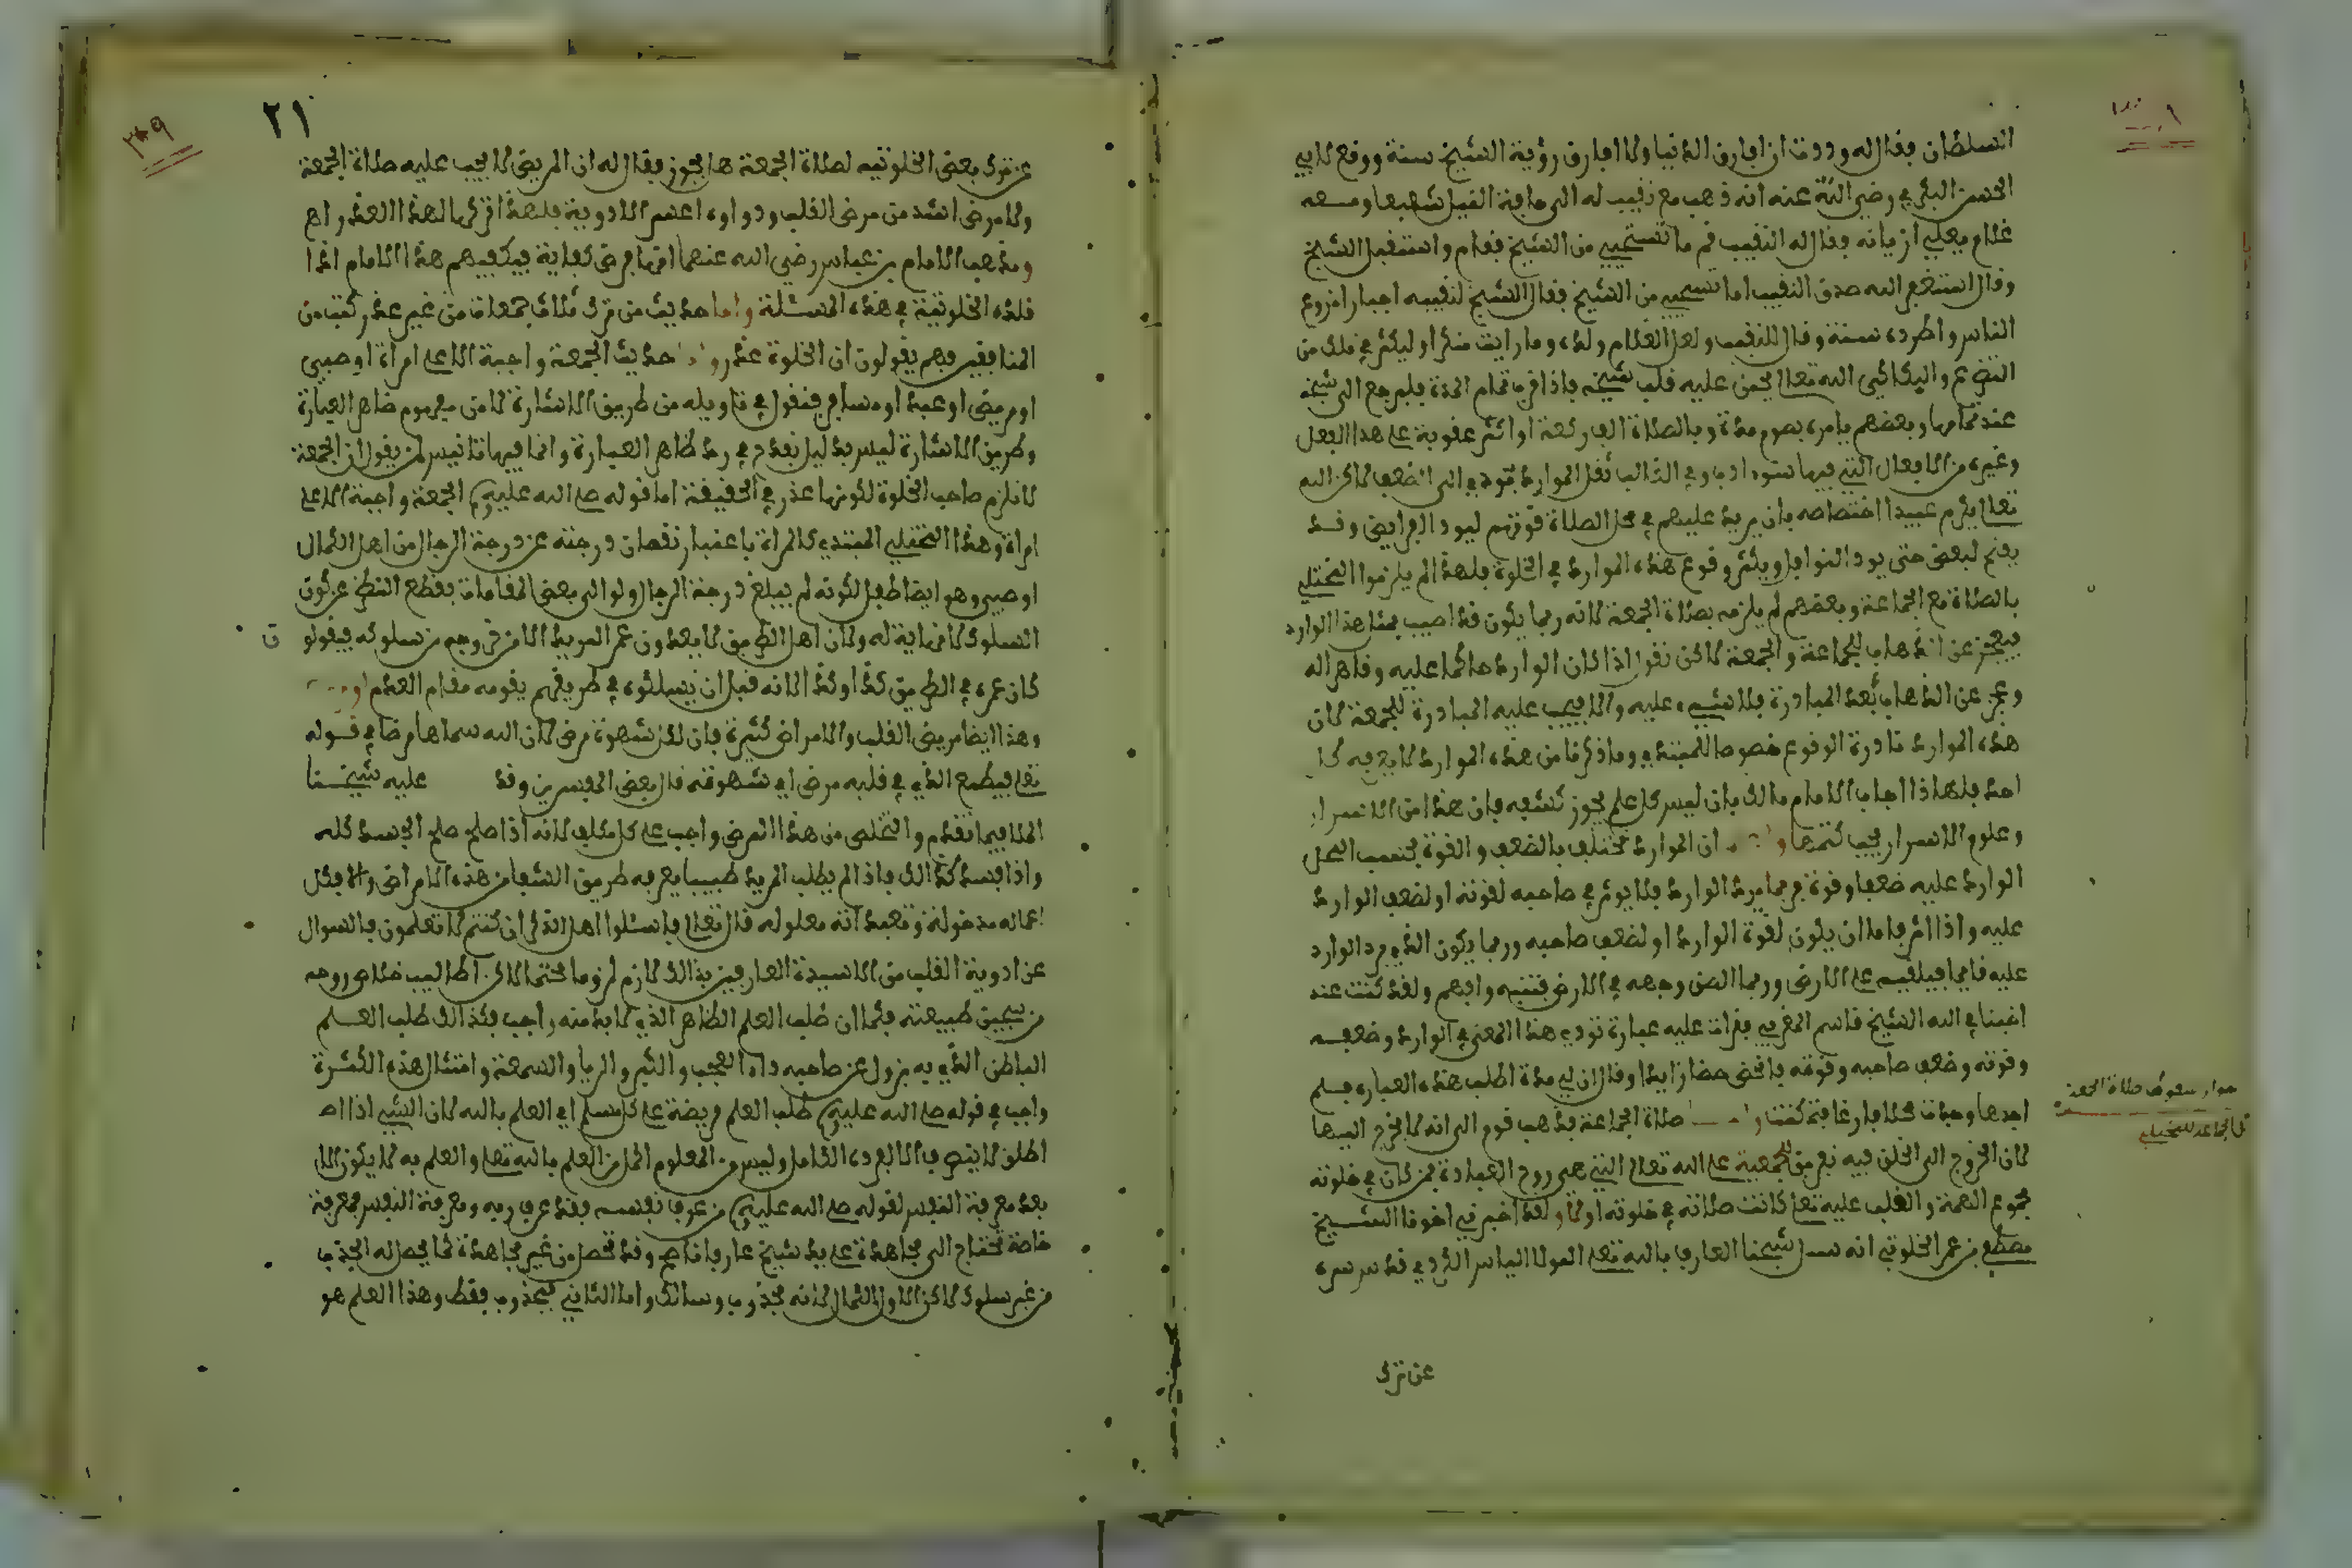 السلطان فقال له وددت ان افارق الدنيا ولا افارق رؤية الشيخ سنة ووقع لابي
الحسن البكري رضي الله عنه انه ذهب مع نقيب له الى
غلام فقال له النقيب قم ما تستحيي من الشيخ فقام واستقبل الشيخ
وقال استغفر الله صدق النقيب اما تستحي من الشيخ فقال الشيخ لنقيبه
الناس واطرده سنة وقال للنقيب ولعل الغلام ولده وما رايت منكرا وليكثر في ذلك من
التضرع والبكا الى الله تعالى يحنن عليه قلب شيخه فاذا قرب تمام المدة فليرجع الى شيخه
عند تمامها وبعضهم يامره بصوم مدة وبالصلاة الف ركعة او اكثر عقوبة على هذا الفعل
وغيره من الافعال التي فيها سوء ادب وفي الغالب ثقل الموارد تودي الى الضعف لاكن الله
تعالى يكرم عبيدا اختصاصه بان يرد عليهم في محل الصلاة قوتهم ليودوا الفرايض وقد
يقع لبعض حتى يودا النوافل ويكثر وقوع هذه الموارد في الخلوة فلهذا لم يلزموا المختلي
بالصلاة مع الجماعة وبعضهم لم يلزمه بصلاة الجمعة لانه ربما يكون قد اصيب بمثل هذا الوارد
فيعجز عن الذهاب للجماعة والجمعة لاكن نقول اذا كان الوارد حاكما عليه وقاهرا له
وعجز عن الذهاب بعد المبادرة فلا شيء عليه والا فيجب عليه المبادرة للجمعة لان
هذه الموارد نادرة الوقوع خصوصا للمبتدي وما ذكرنا من هذه الموارد لا يعرفه كل
احد فلهاذا اجاب الامام مالك بان ليس كل علم يجوز كشفه فان هذا من الاسرار
وعلوم الاسرار يجب كتمها ان الموارد تختلف بالضعف والقوة بحسب المحل
الوارد عليه ضعفا وقوة فربما يرد الوارد فلا يوثر في صاحبه لقوته او لضعف الوارد
عليه واذا اثر فاما ان يكون لقوة الوارد او لضعف صاحبه وربما يكون الذي يرد الوارد
عليه قايما فيلقيه على الارض وربما الصق وجهه في الارض فتنبه وافهم ولقد كنت عند
اخينا في الله الشيخ قاسم المغربي فقرات عليه عبارة تودي هذا المعنى في الوارد وضعفه
وقوته وضعف صاحبه وقوته وقال ان لي مدة اطلب هذه العبارة فلم
اجدها صلاة الجماعة فذهب قوم الى انه لا يخرج اليها
لان الخروج الى الخلق فيه تفريق للجمعية على الله تعالى التي هي روح العبادة فمن كان في خلوته
مجموع الهمة والقلب عليه تعالى كانت صلاته في خلوته اولى ولقد اخبرني اخونا الشيخ
مصطفى بن عمر الخلوتي انه سال شيخنا العارف بالله تعالى المولا الياس الكردي قدس سره
عن ترك
جواز سقوط صلاة الجمعة
والجماعة للمختلي
٢١
عن ترك بعض الخلوتيه لصلاة الجمعة هل يجوز فقال له ان المريض لا يجب عليه صلاة الجمعة
ولا مرض اشد من مرض القلب ودواوه اعسر الادوية فلهذا تركها لهذا العذر اه
ومذهب الامام بن عباس رضي الله عنهما انها فرض كفاية فيكفيهم هذا الامام اذا
قلده الخلوتية في هذه المسئلة واما حديث من ترك ثلاث جمعات من غير عذر كتب من
المنافقين فهم يقولون ان الخلوة عذر حديث الجمعة واجبة الا على امراة او صبي
او مريض او عبد او مسافر فنقول في تاويله من طريق الاشارة لا من مفهوم ظاهر العبارة
وطريق الاشارة ليس بدليل يقدم في رد ظاهر العبارة وانما فيها تانيس لمن يقول ان الجمعة
لا تلزم صاحب الخلوة لكونها عذر في الحقيقة اما قوله صلى الله عليه وسلم الجمعة واجبة الا على
امراة وهذا المختلي المبتدي كالمراة باعتبار نقصان درجته عن درجة الرجال من اهل الكمال
او صبي وهو ايضا طفل لكونه لم يبلغ درجة الرجال ولو الى بعض المقامات بقطع النظر عن كون
السلوك لا نهاية له ولان اهل الطريق لا يعدون عمر المريد الا من وجهه من سلوكه فيقولو
ن
كان عمره في الطريق كذا وكذا لانه قبل ان يسلكوه في طريقهم يقومه مقام العدم
وهذا ايضا مريض القلب والامراض كثيرة فان لكل شهوة مرض لان الله سماها مرضا في قوله
تعالى فيطمع الذي في قلبه مرض اي شهوة قال بعض المفسرين وقد عليه شيخنا
الملا فيما تقدم والتخلص من هذا المرض واجب على كل مكلف لانه اذا صلح صلح الجسد كله
واذا فسد كذالك فاذا لم يطلب المريد طبيبا يعرفه طريق الشفا من هذه الامراض والا فكل
اعماله مدخولة وتعبداته معلوله قال تعالى فاسئلوا اهل الذكر ان كنتم لا تعلمون فالسوال
عن ادوية القلب من الاسيدة العارفين بذالك لازم لزوما محتما لاكن اطالب خلاص روحه
من سجين طبيعته فكما ان طلب العلم الظاهر الذي لا بد منه واجب فكذالك طلب العلم
الباطن الذي به يزول عن صاحبه داء العجب والكبر والريا والسمعة وامثال هذه الكثيرة
واجب في قوله صلى الله عليه وسلم طلب العلم فريضة على كل مسلم اي العلم بالله لان الشيء اذا
اطلق لا ينصرف الا لفرده الكامل وليس من المعلوم اكمل من العلم بالله تعالى والعلم به لا يكون الا
بعد معرفة النفس لقوله صلى الله عليه وسلم من عرف نفسه فقد عرف ربه ومعرفة النفس معرفة
خاصة تحتاج الى مجاهدة على يد شيخ عارف ناصح وقد تحصل من غير مجاهدة كما يحصل له الجذب
من غير سلوك لاكن الاول الكمال لانه مجذوب وسالك واما الثاني مجذوب فقط وهذا العلم هو